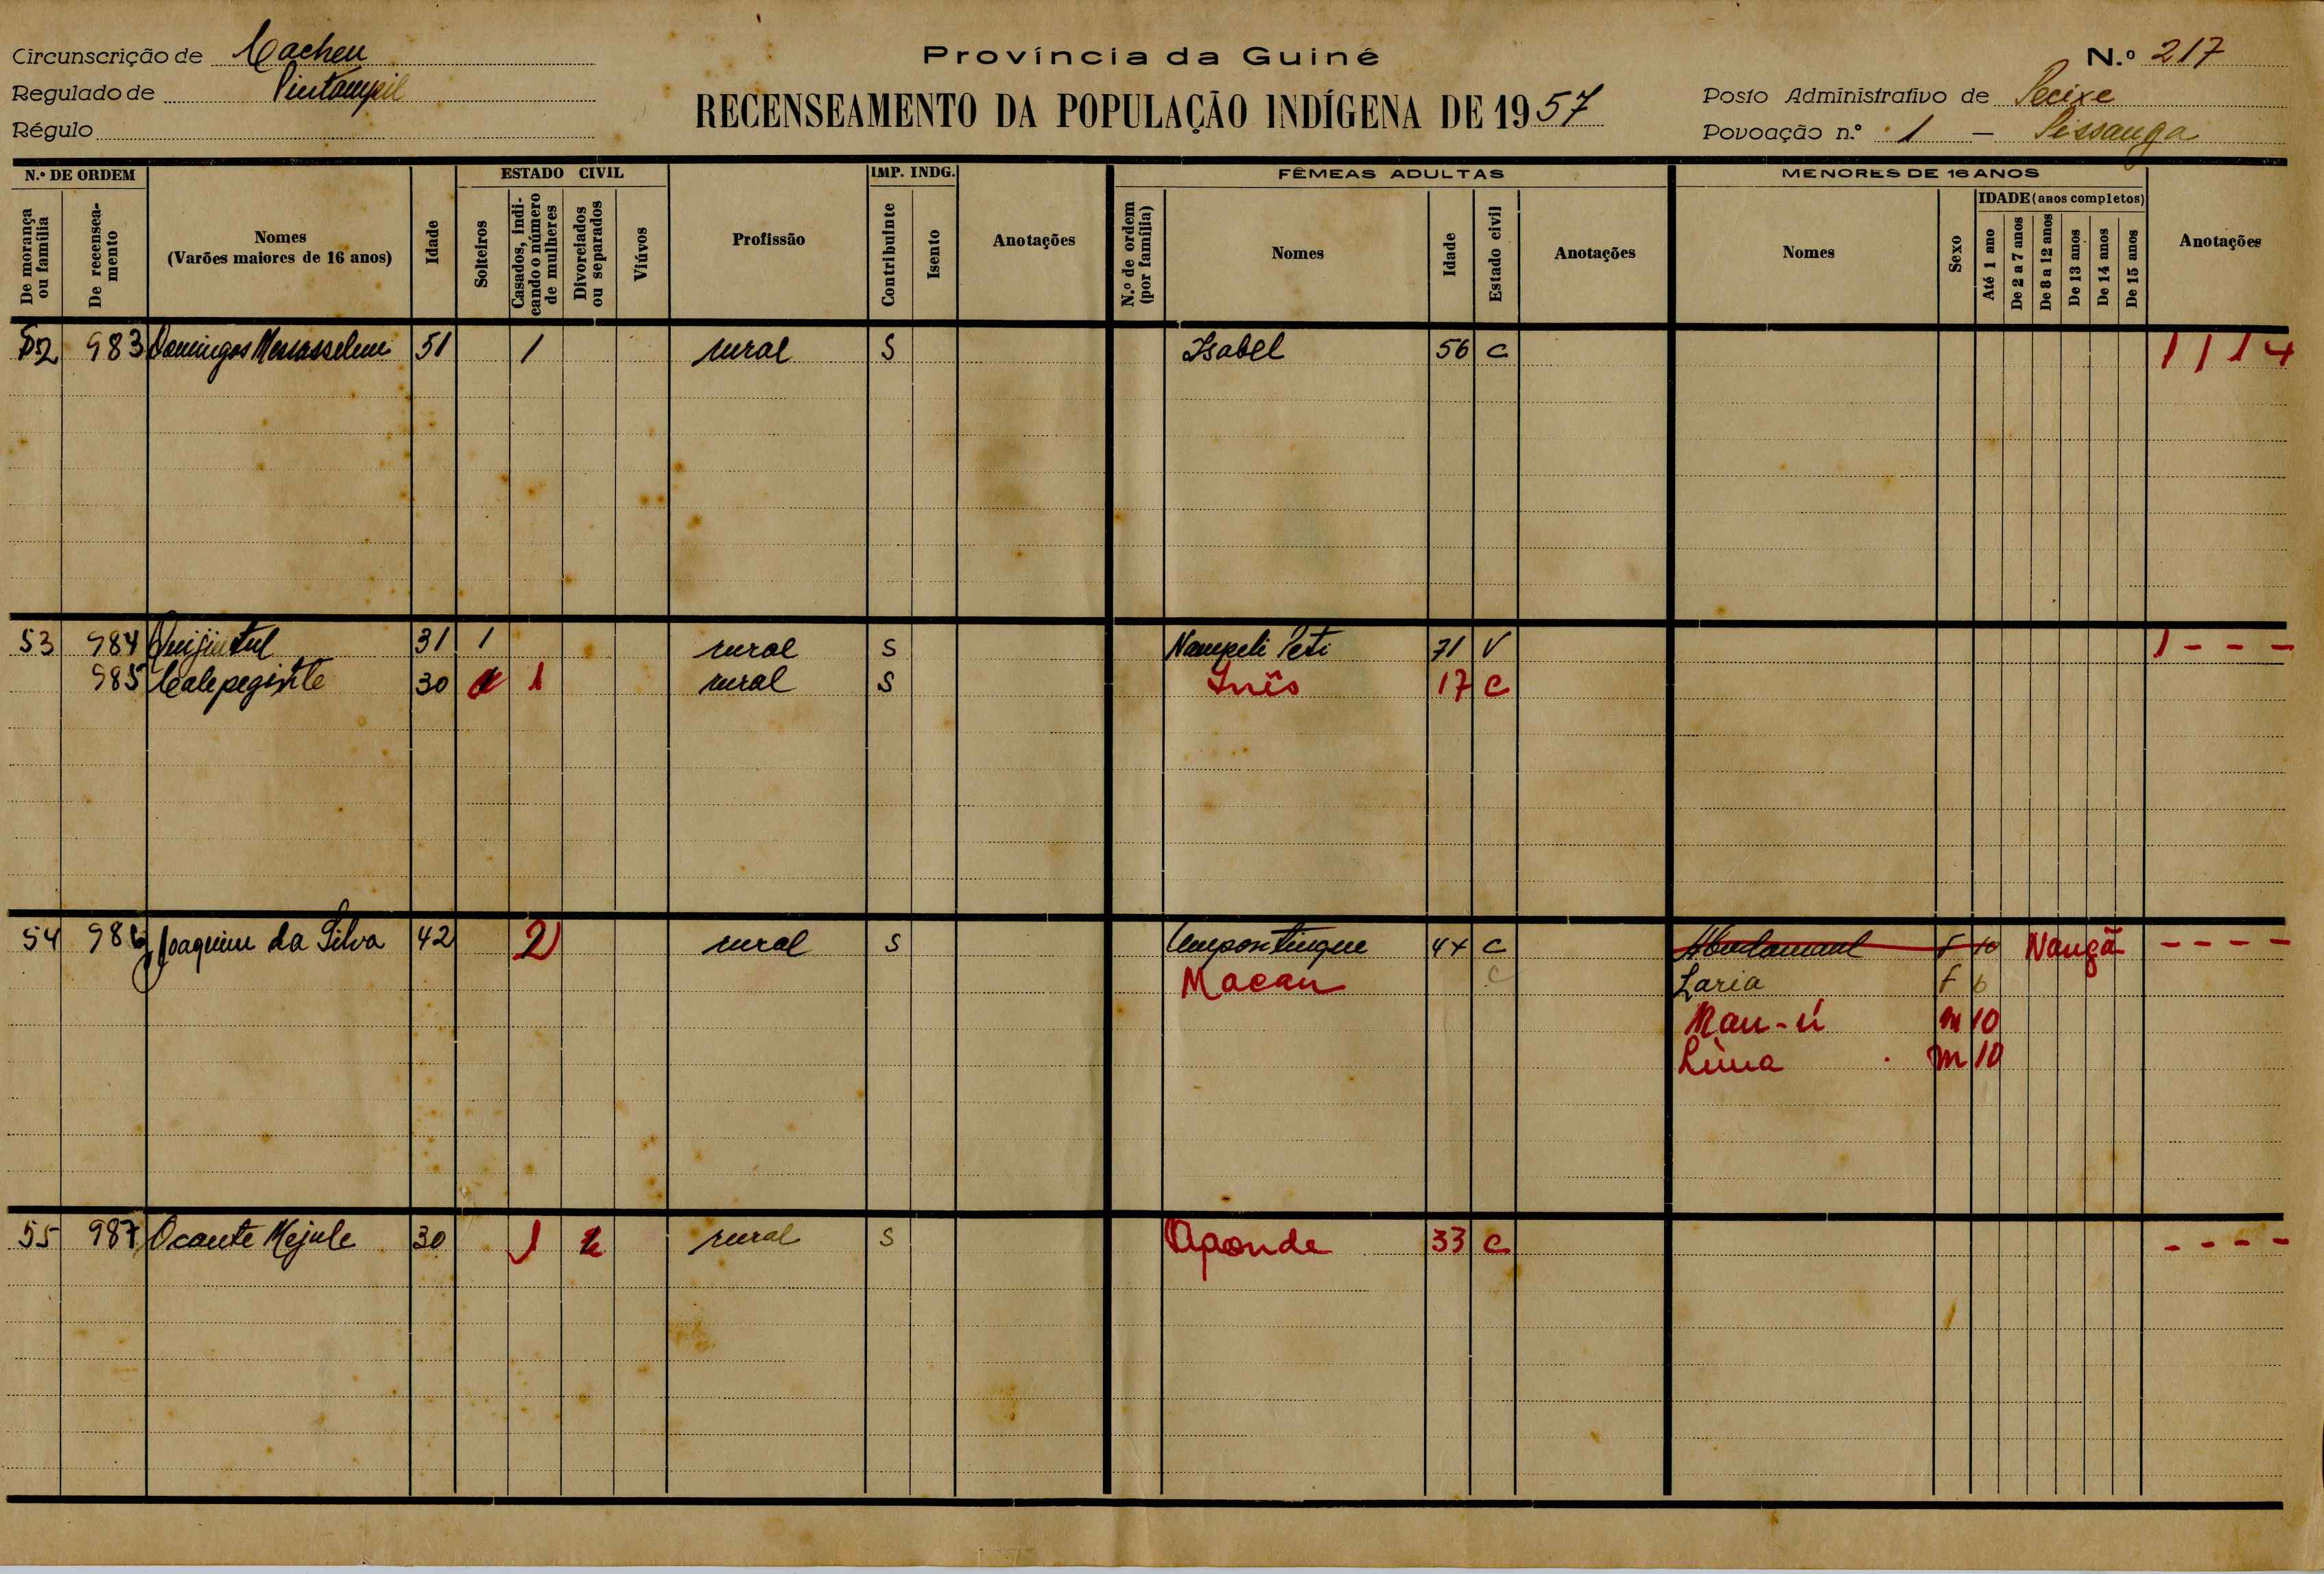 Circunscrição de Cacheu
Província da Guiné
N.º 217
Regulado de Pintampil
Posto Administrativo de Pecixe
Régulo
RECENSEAMENTO DA POPULAÇÃO INDÍGENA DE 1957
Povoação n.º 1 — Pissanga
N.º DE ORDEM
De morança ou família
De recenseamento
Nomes
(Varões maiores de 16 anos)
Idade
ESTADO CIVIL
Solteiros
Casados, indicando o número de mulheres
Divorciados ou separados
Viúvos
Profissão
IMP. INDG.
Contribuinte
Isento
Anotações
FÊMEAS ADULTAS
N.º de ordem (por família)
Nomes
Idade
Estado civil
Anotações
MENORES DE 16 ANOS
Nomes
Sexo
IDADE (anos completos)
Até 1 ano
De 2 a 7 anos
De 8 a 12 anos
De 13 anos
De 14 anos
De 15 anos
Anotações
52 983 Domingos 51 1 rural S Isabel 56 C 1 1 1 4
53 984 31 1 rural S Nampeli Peti 71 V 1 - - -
985 30 1 rural S Inês 17 C
54 986 Joaquim da Silva 42 2 rural S Umpontingue 44 C F 10 Nangã - - - -
Macau C Laria F 6
Mau-ú M 10
Lima M 10
55 987 Ocante Mejule 30 1 2 rural S Aponde 33 C - - - -